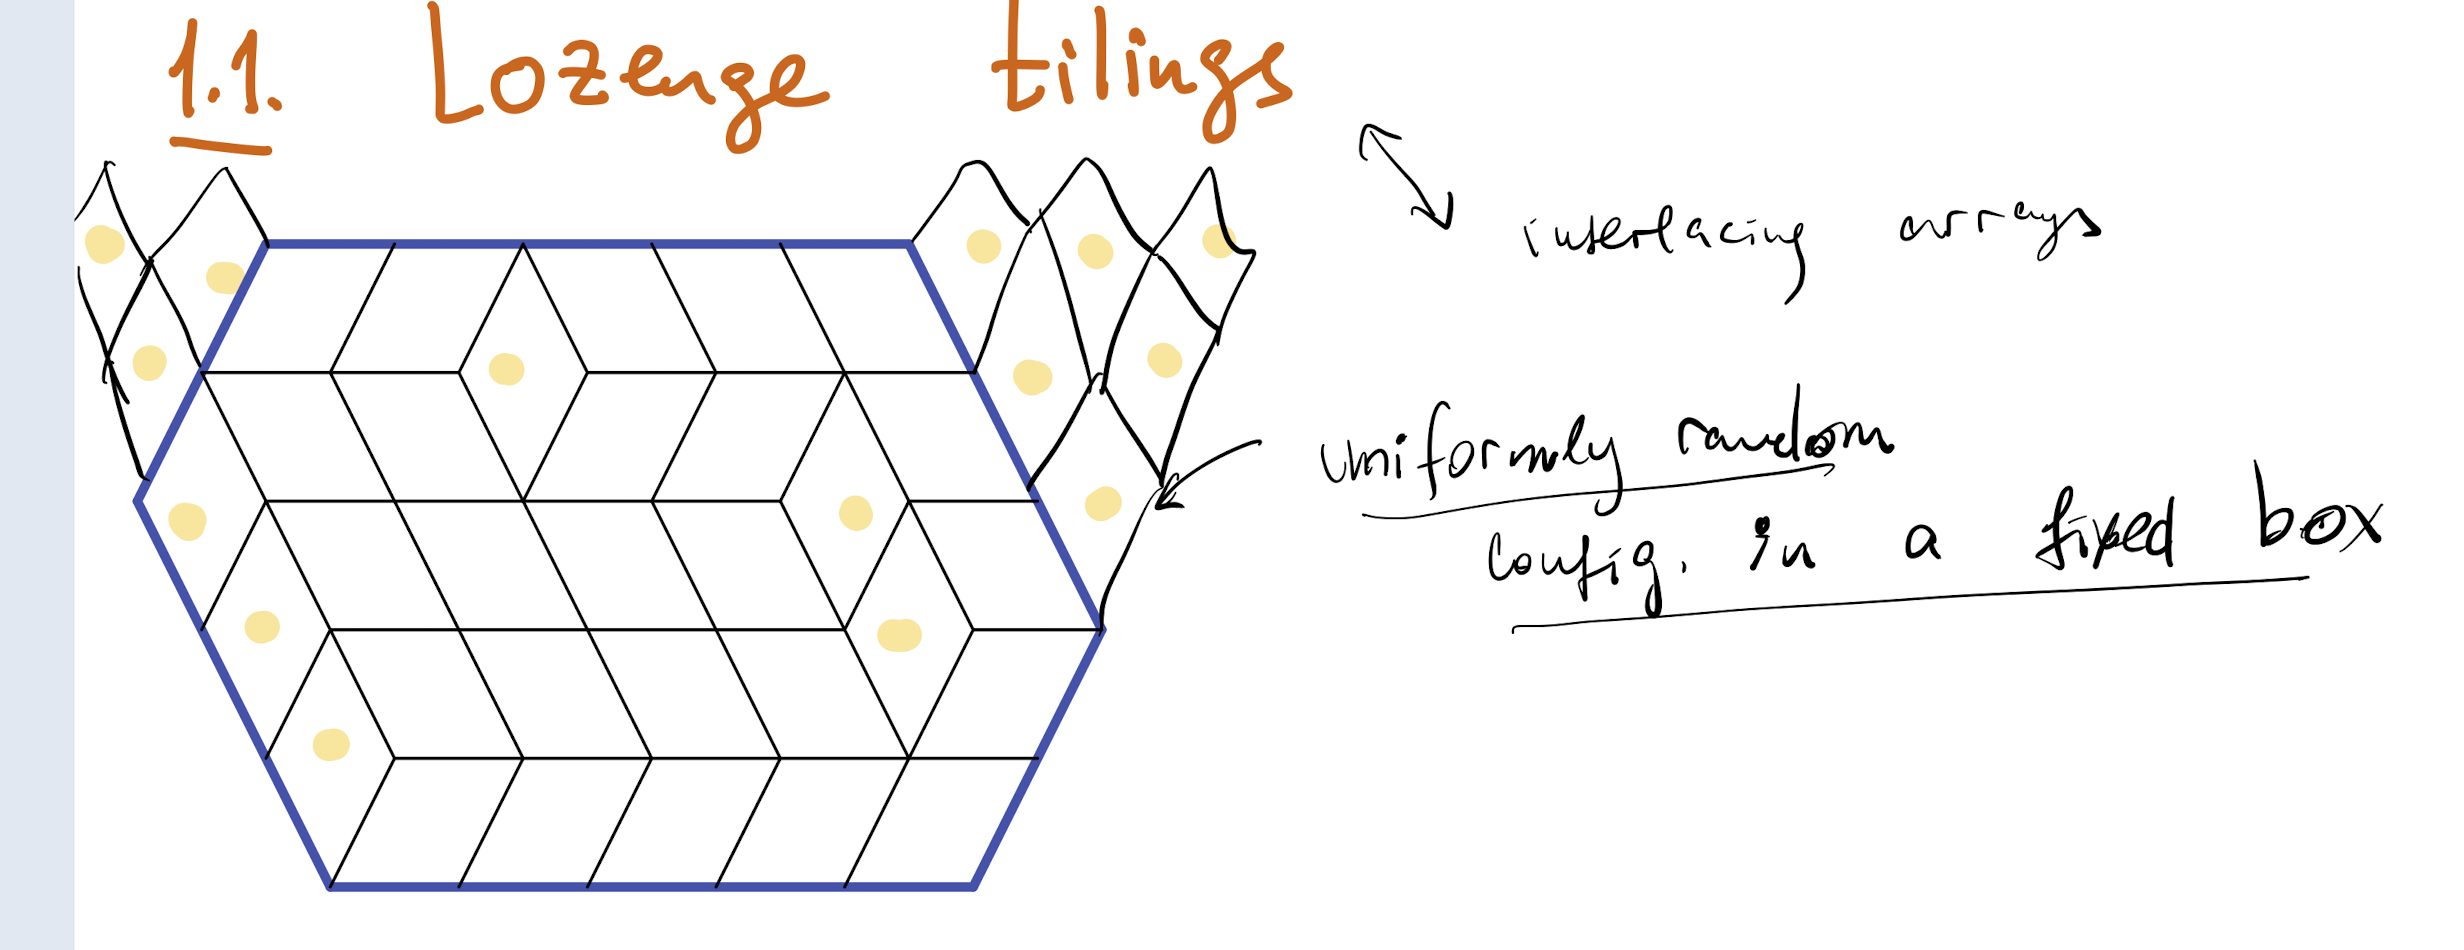 1.1. Lozenge tilings
interlacing arrays
uniformly random
Config. in a fixed box